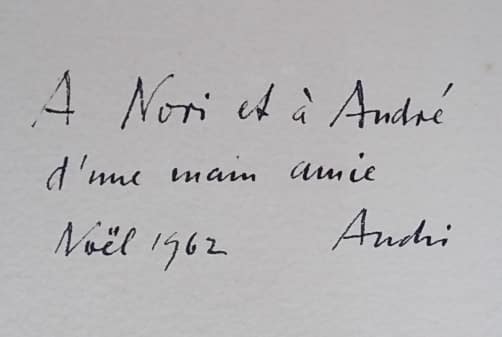 A Nori et à André
d'une main amie
Noël 1962 Andri